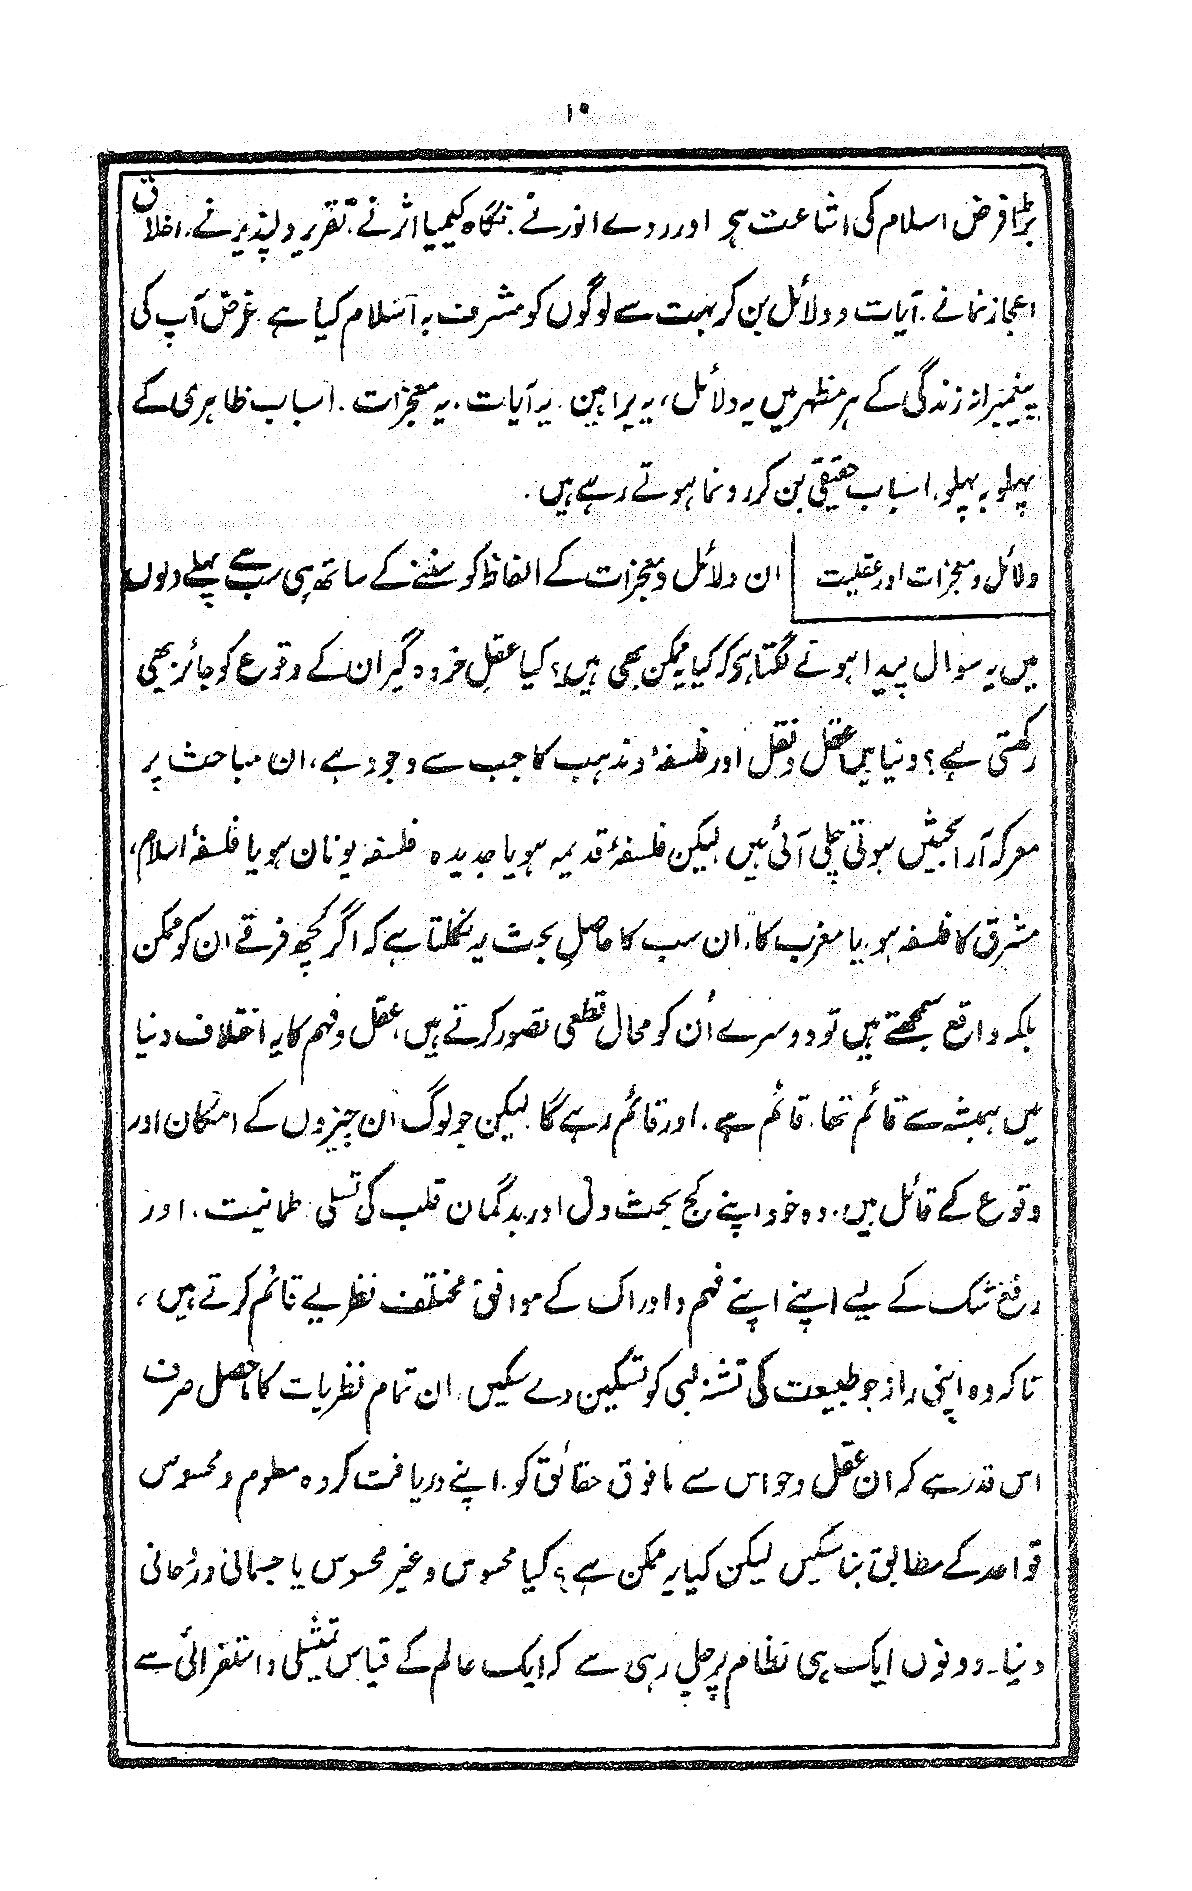 ۱۰
بڑا فرض اسلام کی اشاعت ہی اور روے انور نے، نگاہ کیمیا اثر نے، تقریر دلپذیر نے، اخلاق
اعجاز نما نے، آیات و دلائل بن کر بہت سے لوگوں کو مشرف بہ اسلام کیا ہے، غرض آپ کی
پیغمبرانہ زندگی کے ہر مظہر میں یہ دلائل، یہ براہین، یہ آیات، یہ معجزات، اسباب ظاہری کے
پہلو بہ پہلو، اسباب حقیقی بن کر رونما ہوتے رہے ہیں۔
دلائل و معجزات اور عقلیت ان دلائل و معجزات کے الفاظ کو سننے کے ساتھ ہی سب سے پہلے دلوں
میں یہ سوال پیدا ہونے لگتا ہی کہ کیا یہ ممکن بھی ہیں؟ کیا عقلِ خردہ گیر ان کے وقوع کو جائز بھی
رکھتی ہے؟ دنیا میں عقل و نقل اور فلسفہ و مذہب کا جب سے وجود ہے، ان مباحث پر
معرکہ آرا بحثیں ہوتی چلی آئی ہیں، لیکن فلسفۂ قدیمہ ہو یا جدیدہ، فلسفہ یونان ہو یا فلسفۂ اسلام،
مشرق کا فلسفہ ہو، یا مغرب کا، ان سب کا حاصلِ بحث یہ نکلتا ہے کہ اگر کچھ فرقے ان کو ممکن
بلکہ واقع سمجھتے ہیں تو دوسرے اُن کو محال قطعی تصور کرتے ہیں، عقل و فہم کا یہ اختلاف دنیا
میں ہمیشہ سے قائم تھا، قائم ہے، اور قائم رہے گا، لیکن جو لوگ ان چیزوں کے امکان اور
وقوع کے قائل ہیں، وہ خود اپنے کج بحث دل اور بدگمان قلب کی تسلی، طمانیت، اور
رفع شک کے لیے اپنے اپنے فہم و ادراک کے موافق مختلف نظریے قائم کرتے ہیں،
تاکہ وہ اپنی راز جو طبیعت کی تشنہ لبی کو تسکین دے سکیں، ان تمام نظریات کا ماحصل صرف
اس قدر ہے کہ ان عقل و حواس سے مافوق حقائق کو، اپنے دریافت کردہ معلوم و محسوس
قواعد کے مطابق بنا سکیں لیکن کیا یہ ممکن ہے؟ کیا محسوس و غیر محسوس یا جسمانی و رُحانی
دنیا۔ دونوں ایک ہی نظام پر چل رہی ہے کہ ایک عالم کے قیاس تمثیلی و استقرائی سے